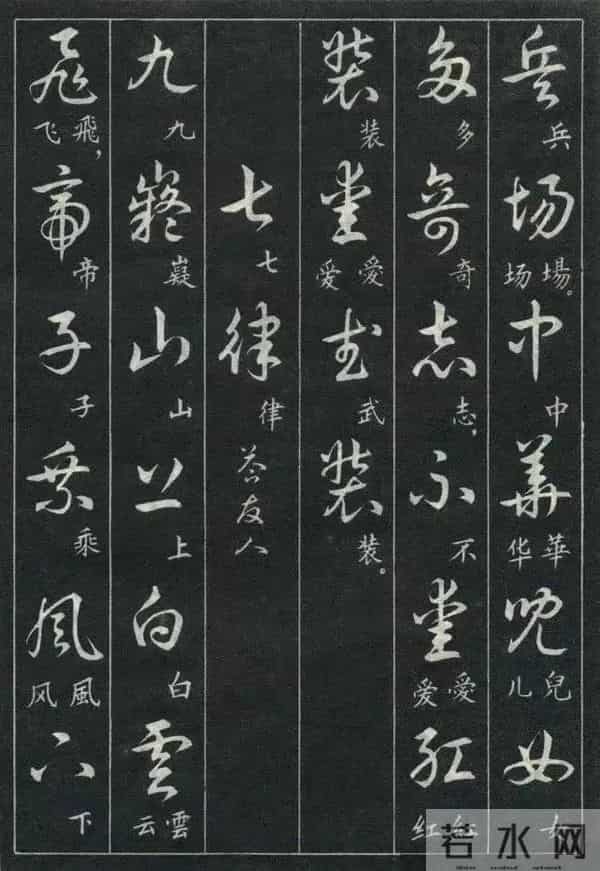 兵場中華兒女
兵場。场中華华兒儿女
多奇志不愛紅
多奇志,不愛爱紅红
装愛武装
装愛爱武装。
七律
七律
答友人
九嶷山上白雲
九嶷山上白雲云
飛帝子乘風下
飛,飞帝子乘風风下
若水网